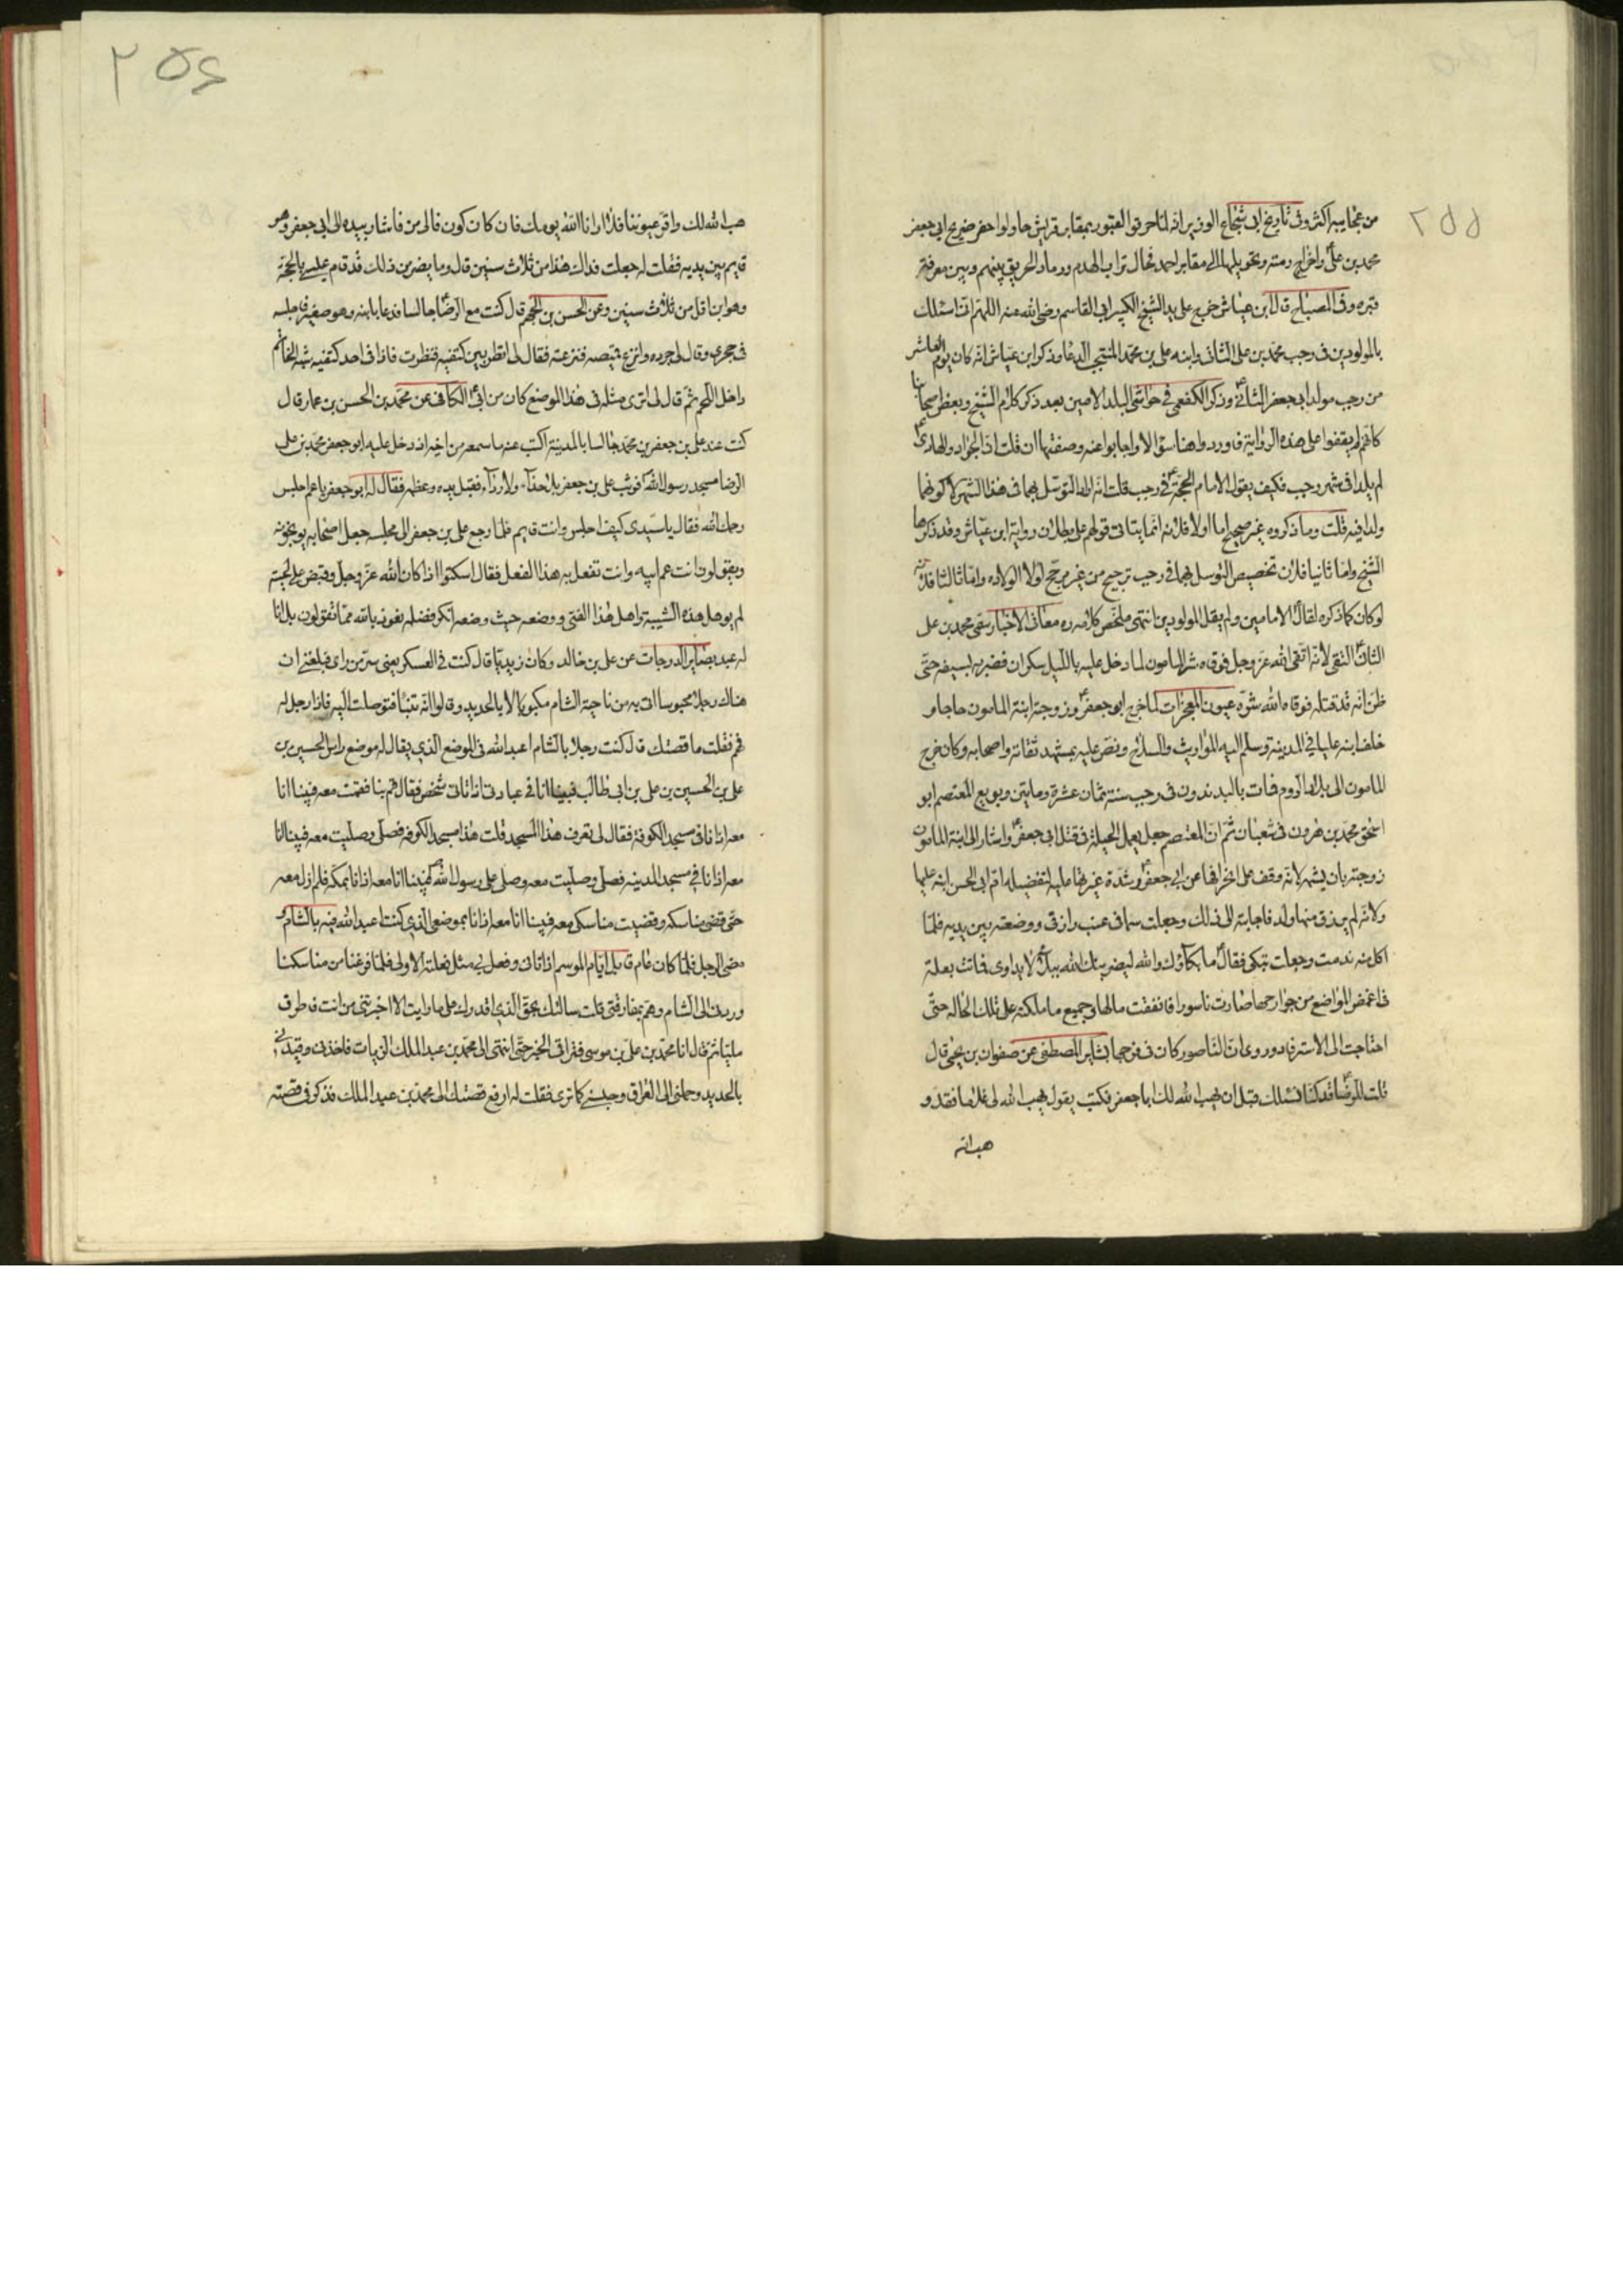 ٢٥٥
من عجايبه اكثر وفى تأريخ ابى شجاع الوزير انه لما حرقوا القبور بمقابر قريش حاولوا حفر ضريح ابى جعفر
محمد بن على واخراج رمته وتحويلها الى مقابر احمد فحال تراب الهدم ورماد الحريق بينهم وبين معرفة
قبره وفى المصباح قال ابن عياش خرج على يد الشيخ الكبير ابى القاسم رضى الله عنه اللهم انى اسئلك
بالمولودين فى رجب محمد بن على الثانى وابنه على بن محمد المنتجب الدعا وذكر ابن عياش انه كان يوم العاشر
من رجب مولد ابى جعفر الثانى وذكر الكفعمى فى حواشى البلد الامين بعد ذكر كلام الشيخ وبعض اصحابنا
كانهم لم يقفوا على هذه الرواية فاوردوا هنا سؤالا واجابوا عنه وصفتها ان قلت ان الجواد والهادى
لم يلدا فى شهر رجب فكيف يقول الامام الحجة فى رجب قلت انه اراد التوسل بهما فى هذا الشهر لا كونهما
ولدا فيه قلت وما ذكروه غير صحيح اما اولا فلانه انما يتاتى قولهم على بطلان رواية ابن عياش وقد ذكرها
الشيخ واما ثانيا فلان تخصيص التوسل بهما فى رجب ترجيح من غير مرجح لولا الولاده واما ثالثا فلانه
لو كان كما ذكره لقال الامامين ولم يقل المولودين انتهى ملخص كلامه ره معانى الاخبار سقى محمد بن على
الثانى التقى لانه اتقى الله عز وجل فوقاه شر المامون لما دخل عليه بالليل سكران فضربه بسيفه حتى
ظن انه قد قتله فوقاه الله شره عيون المعجزات لما خرج ابو جعفر وزوجته ابنة المامون حاجا و
خلف ابنه عليا فى المدينة وسلم اليه المواريث والسلاح ونص عليه بمشهد ثقاته واصحابه وكان خرج
المامون الى بلاد الروم فمات بالبدندون فى رجب سنة ثمان عشرة ومايتين وبويع المعتصم ابو
اسحق محمد بن هرون فى شعبان ثم ان المعتصم جعل يعمل الحيلة فى قتل ابى جعفر واشار الى ابنة المامون
زوجته بان يسمه لانه وقف على انحرافها عن ابى جعفر وشدة غيرتها عليه لتفضيله ام ابى الحسن ابنه عليها
ولانه لم يرزق منها ولد فاجابته الى ذلك وجعلت سما فى عنب رازقى ووضعته بين يديه فلما
اكل منه ندمت وجعلت تبكى فقال ما بكاؤك والله ليضربنك الله ببلاء لا يداوى فماتت بعلة
فى اغمض المواضع من جوارحها صارت ناسورا فانفقت مالها وجميع ما ملكته على تلك الحالة حتى
احتاجت الى الاسترفاد وروى ان الناصور كان فى فرجها بصاير المصطفى عن صفوان بن يحيى قال
قلت للرضا قد كنا نسئلك قبل ان يهب الله لك ابا جعفر فكنت يقول يهب الله لى غلاما فقد و
هب الله
٢٥٤
هب الله لك واقر عيوننا فلا ارانا الله يومك فان كان كون فالى من فاشار بيده الى ابى جعفر وهو
قايم بين يديه فقلت له جعلت فداك هذا من ثلاث سنين قال وما يضر من ذلك قد قام عيسى بالحجة
وهو ابن اقل من ثلاث سنين وعن الحسن بن الجهم قال كنت مع الرضا جالسا فدعا بابنه وهو صغير فاجلسه
فى حجرى وقال لى جرده وانزع قميصه فنزعته فقال لى انظر بين كتفيه فنظرت فاذا فى احد كتفيه شبه الخاتم
داخل اللحم ثم قال لى اترى مثله فى هذا الموضع كان من ابى الكافى عن محمد بن الحسن بن عمار قال
كنت عند على بن جعفر بن محمد جالسا بالمدينة اكتب عنه ما سمعه من اخيه اذ دخل عليه ابو جعفر محمد بن على
الرضا مسجد رسول الله فوثب على بن جعفر بلا حذاء ولا رداء فقبل يده وعظمه فقال له ابو جعفر يا عم اجلس
رحمك الله فقال يا سيدى كيف اجلس وانت قايم فلما رجع على بن جعفر الى مجلسه جعل اصحابه يوبخونه
ويقولون انت عم ابيه وانت تفعل به هذا الفعل فقال اسكتوا اذا كان الله عز وجل وقبض على لحيته
لم يوهل هذه الشيبة واهل هذا الفتى ووضعه حيث وضعه انكر فضله نعوذ بالله مما تقولون بل انا
له عبد بصاير الدرجات عن على بن خالد وكان زيديا قال كنت فى العسكر يعنى سر من راى فبلغنى ان
هناك رجلا محبوسا اتى به من ناحية الشام مكبولا بالحديد وقالوا انه تنبأ فتوصلت اليه فاذا رجل له
فهم فقلت ما قصتك قال كنت رجلا بالشام اعبد الله فى الموضع الذى يقال له موضع راس الحسين بن
على بن الحسين بن على بن ابى طالب فبينما انا فى عبادتى اذ اتانى شخص فقال قم بنا فقمت معه فبينا انا
معه اذ انا فى مسجد الكوفة فقال لى تعرف هذا المسجد قلت هذا مسجد الكوفة فصلى وصليت معه فبينا انا
معه اذ انا فى مسجد المدينة فصلى وصليت معه وصلى على رسول الله فبينا انا معه اذ انا بمكة فلم ازل معه
حتى قضى مناسكه وقضيت مناسكى معه فبينا انا معه اذ انا بموضعى الذى كنت اعبد الله فيه بالشام و
مضى الرجل فلما كان عام قابل ايام الموسم اذ اتانى وفعل بى مثل فعلته الاولى فلما فرغنا من مناسكنا
وردنى الى الشام وهم بمفارقتى قلت سالتك بحق الذى اقدرك على ما رايت الا اخبرتنى من انت فاطرق
مليا ثم قال انا محمد بن على بن موسى فتراقى الخبر حتى انتهى الى محمد بن عبد الملك الزيات فاخذنى وقيدنى
بالحديد وحملنى الى العراق وحبسنى كما ترى فقلت له ارفع قصتك الى محمد بن عبد الملك فذكر فى قصته